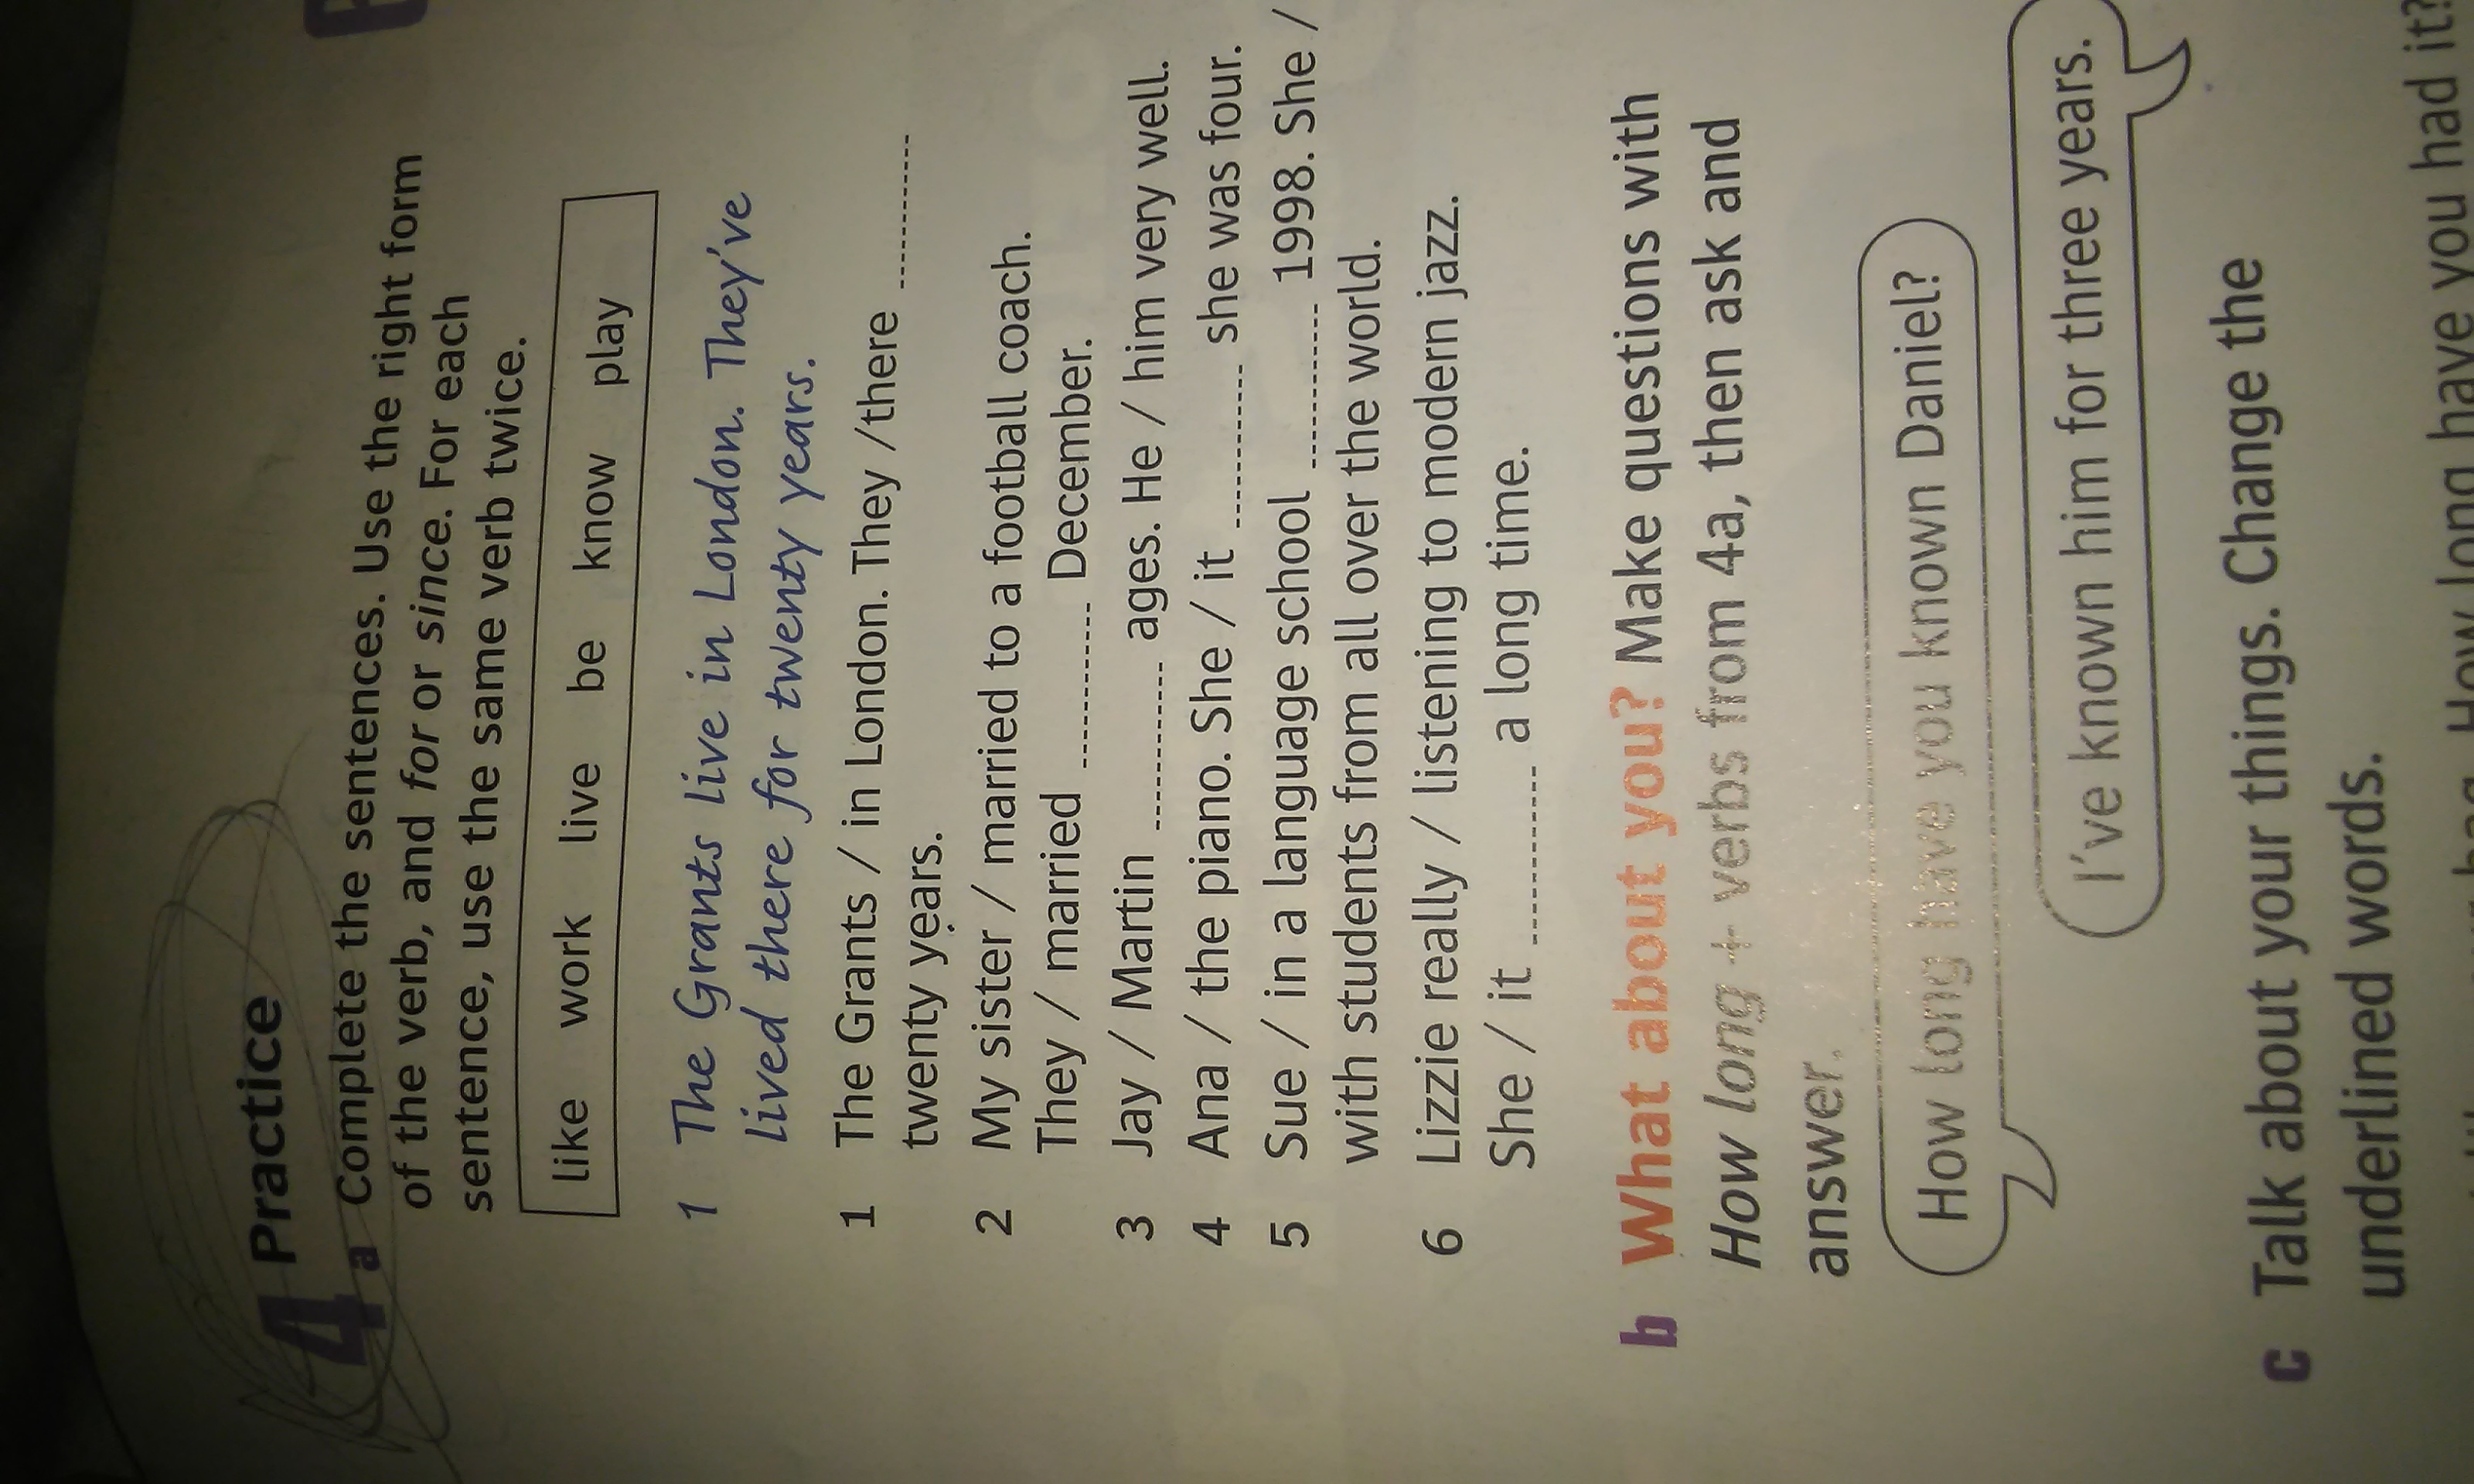 4 Practice
a Complete the sentences. Use the right form
of the verb, and for or since. For each
sentence, use the same verb twice.
like work live be know play
1 The Grants live in London. They've
lived there for twenty years.
1 The Grants / in London. They /there ............
twenty years.
2 My sister / married to a football coach.
They / married ............ December.
3 Jay / Martin ............ ages. He / him very well.
4 Ana / the piano. She / it ............ she was four.
5 Sue / in a language school ............ 1998. She /
with students from all over the world.
6 Lizzie really / listening to modern jazz.
She / it ............ a long time.
b What about you? Make questions with
How long + verbs from 4a, then ask and
answer.
How long have you known Daniel?
I've known him for three years.
c Talk about your things. Change the
underlined words.
How long have you had it?